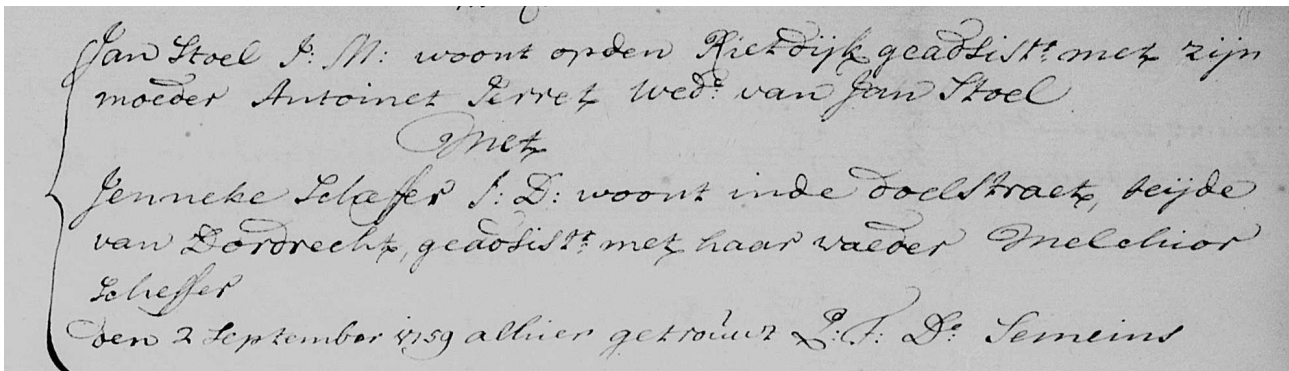 Jan Stoel J: M: woont opden Rietdijk geadsistt. met zijn
moeder Antoinet Perret Wede. van Jan Stoel
Met
Jenneke Schefer J: D: woont inde doelstraet, beijde
van Dordrecht, geadsistt. met haar vaeder Melchior
Scheffer
den 2 September 1759 alhier getrouwt P: T: Ds. Semeins